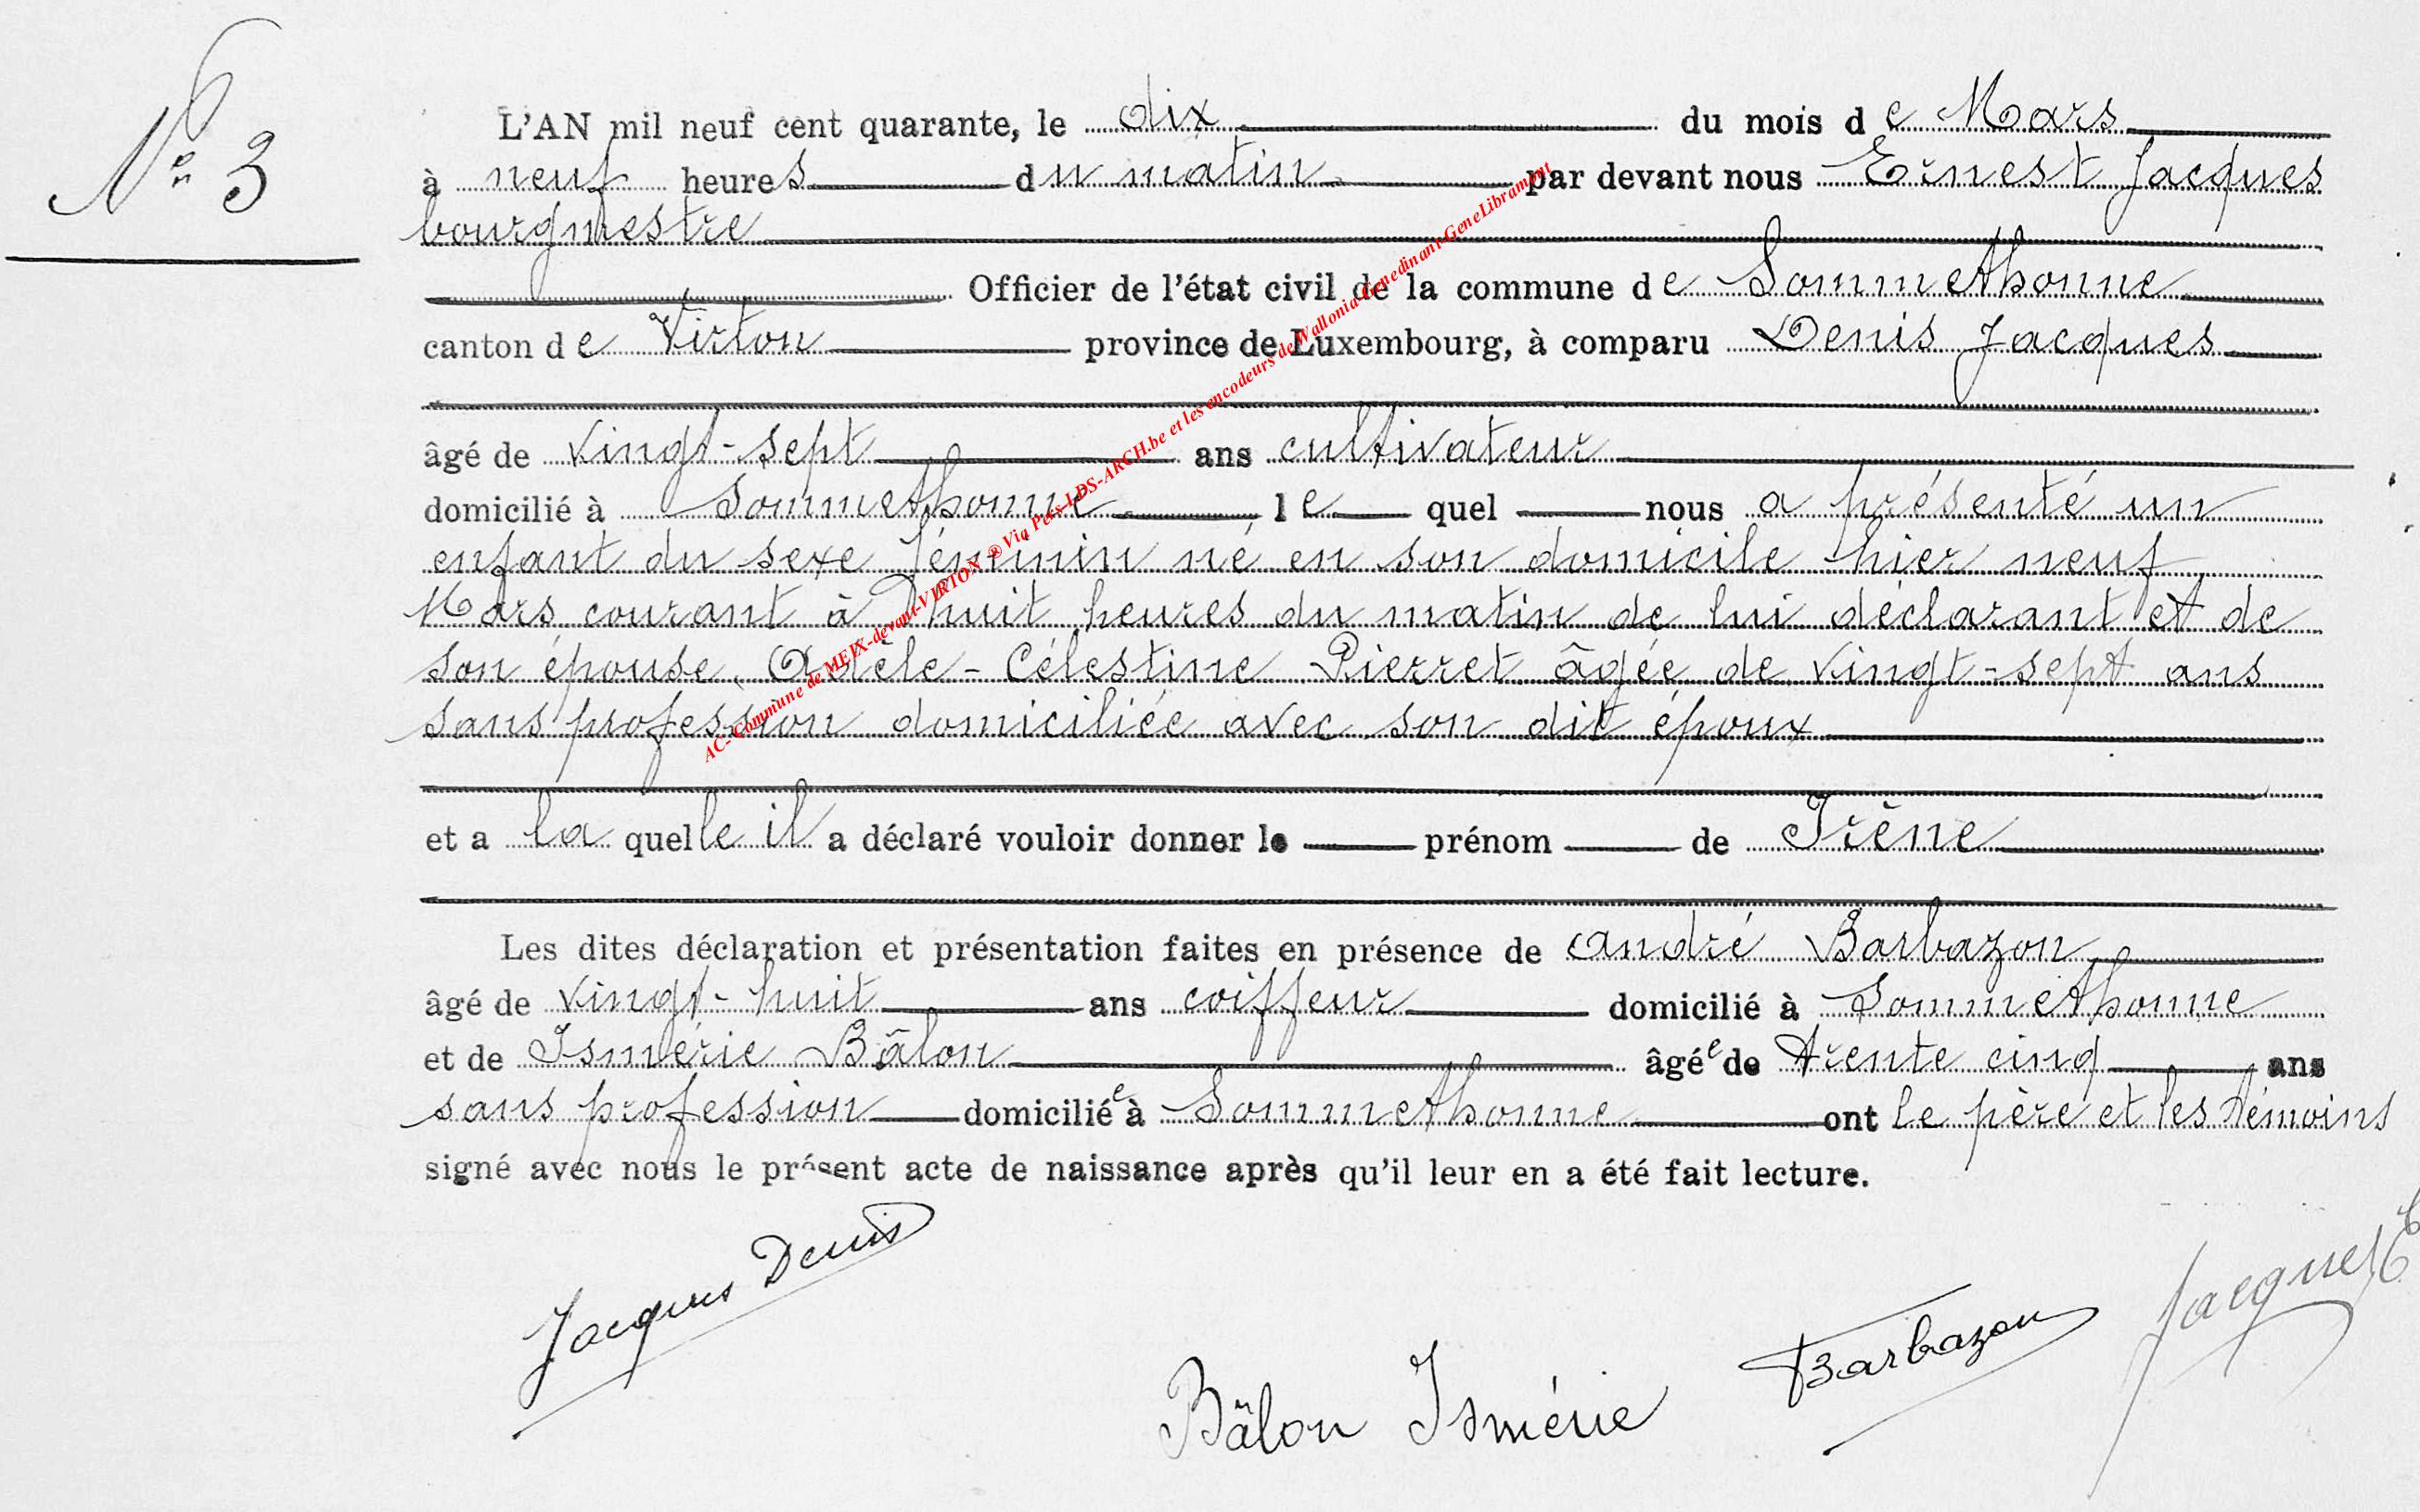 N° 3
L'AN mil neuf cent quarante, le dix du mois de Mars
à neuf heures du matin par devant nous Ernest Jacques
bourgmestre
Officier de l'état civil de la commune de Sommethonne
canton de Virton province de Luxembourg, à comparu Denis Jacques
âgé de vingt-sept ans cultivateur
domicilié à Sommethonne le quel nous a présenté un
enfant du sexe féminin né en son domicile hier neuf
Mars courant à huit heures du matin de lui déclarant et de
son épouse, Adèle-Célestine Pierret âgée de vingt-sept ans
sans profession domiciliée avec son dit époux
et a la quelle il a déclaré vouloir donner le prénom de Irène
Les dites déclaration et présentation faites en présence de André Barbazon
âgé de vingt-huit ans coiffeur domicilié à Sommethonne
et de Ismérie Bâlon âgée de trente cinq ans
sans profession domiciliée à Sommethonne ont le père et les témoins
signé avec nous le présent acte de naissance après qu'il leur en a été fait lecture.
Jacques Denis
Bâlon Ismérie
Barbazon
Jacques E
AC- Commune de MEIX-devant-VIRTON ® Via Pers-LDS-ARCH.be et les encodeurs de Wallonia-Genedinant-GeneLibramont